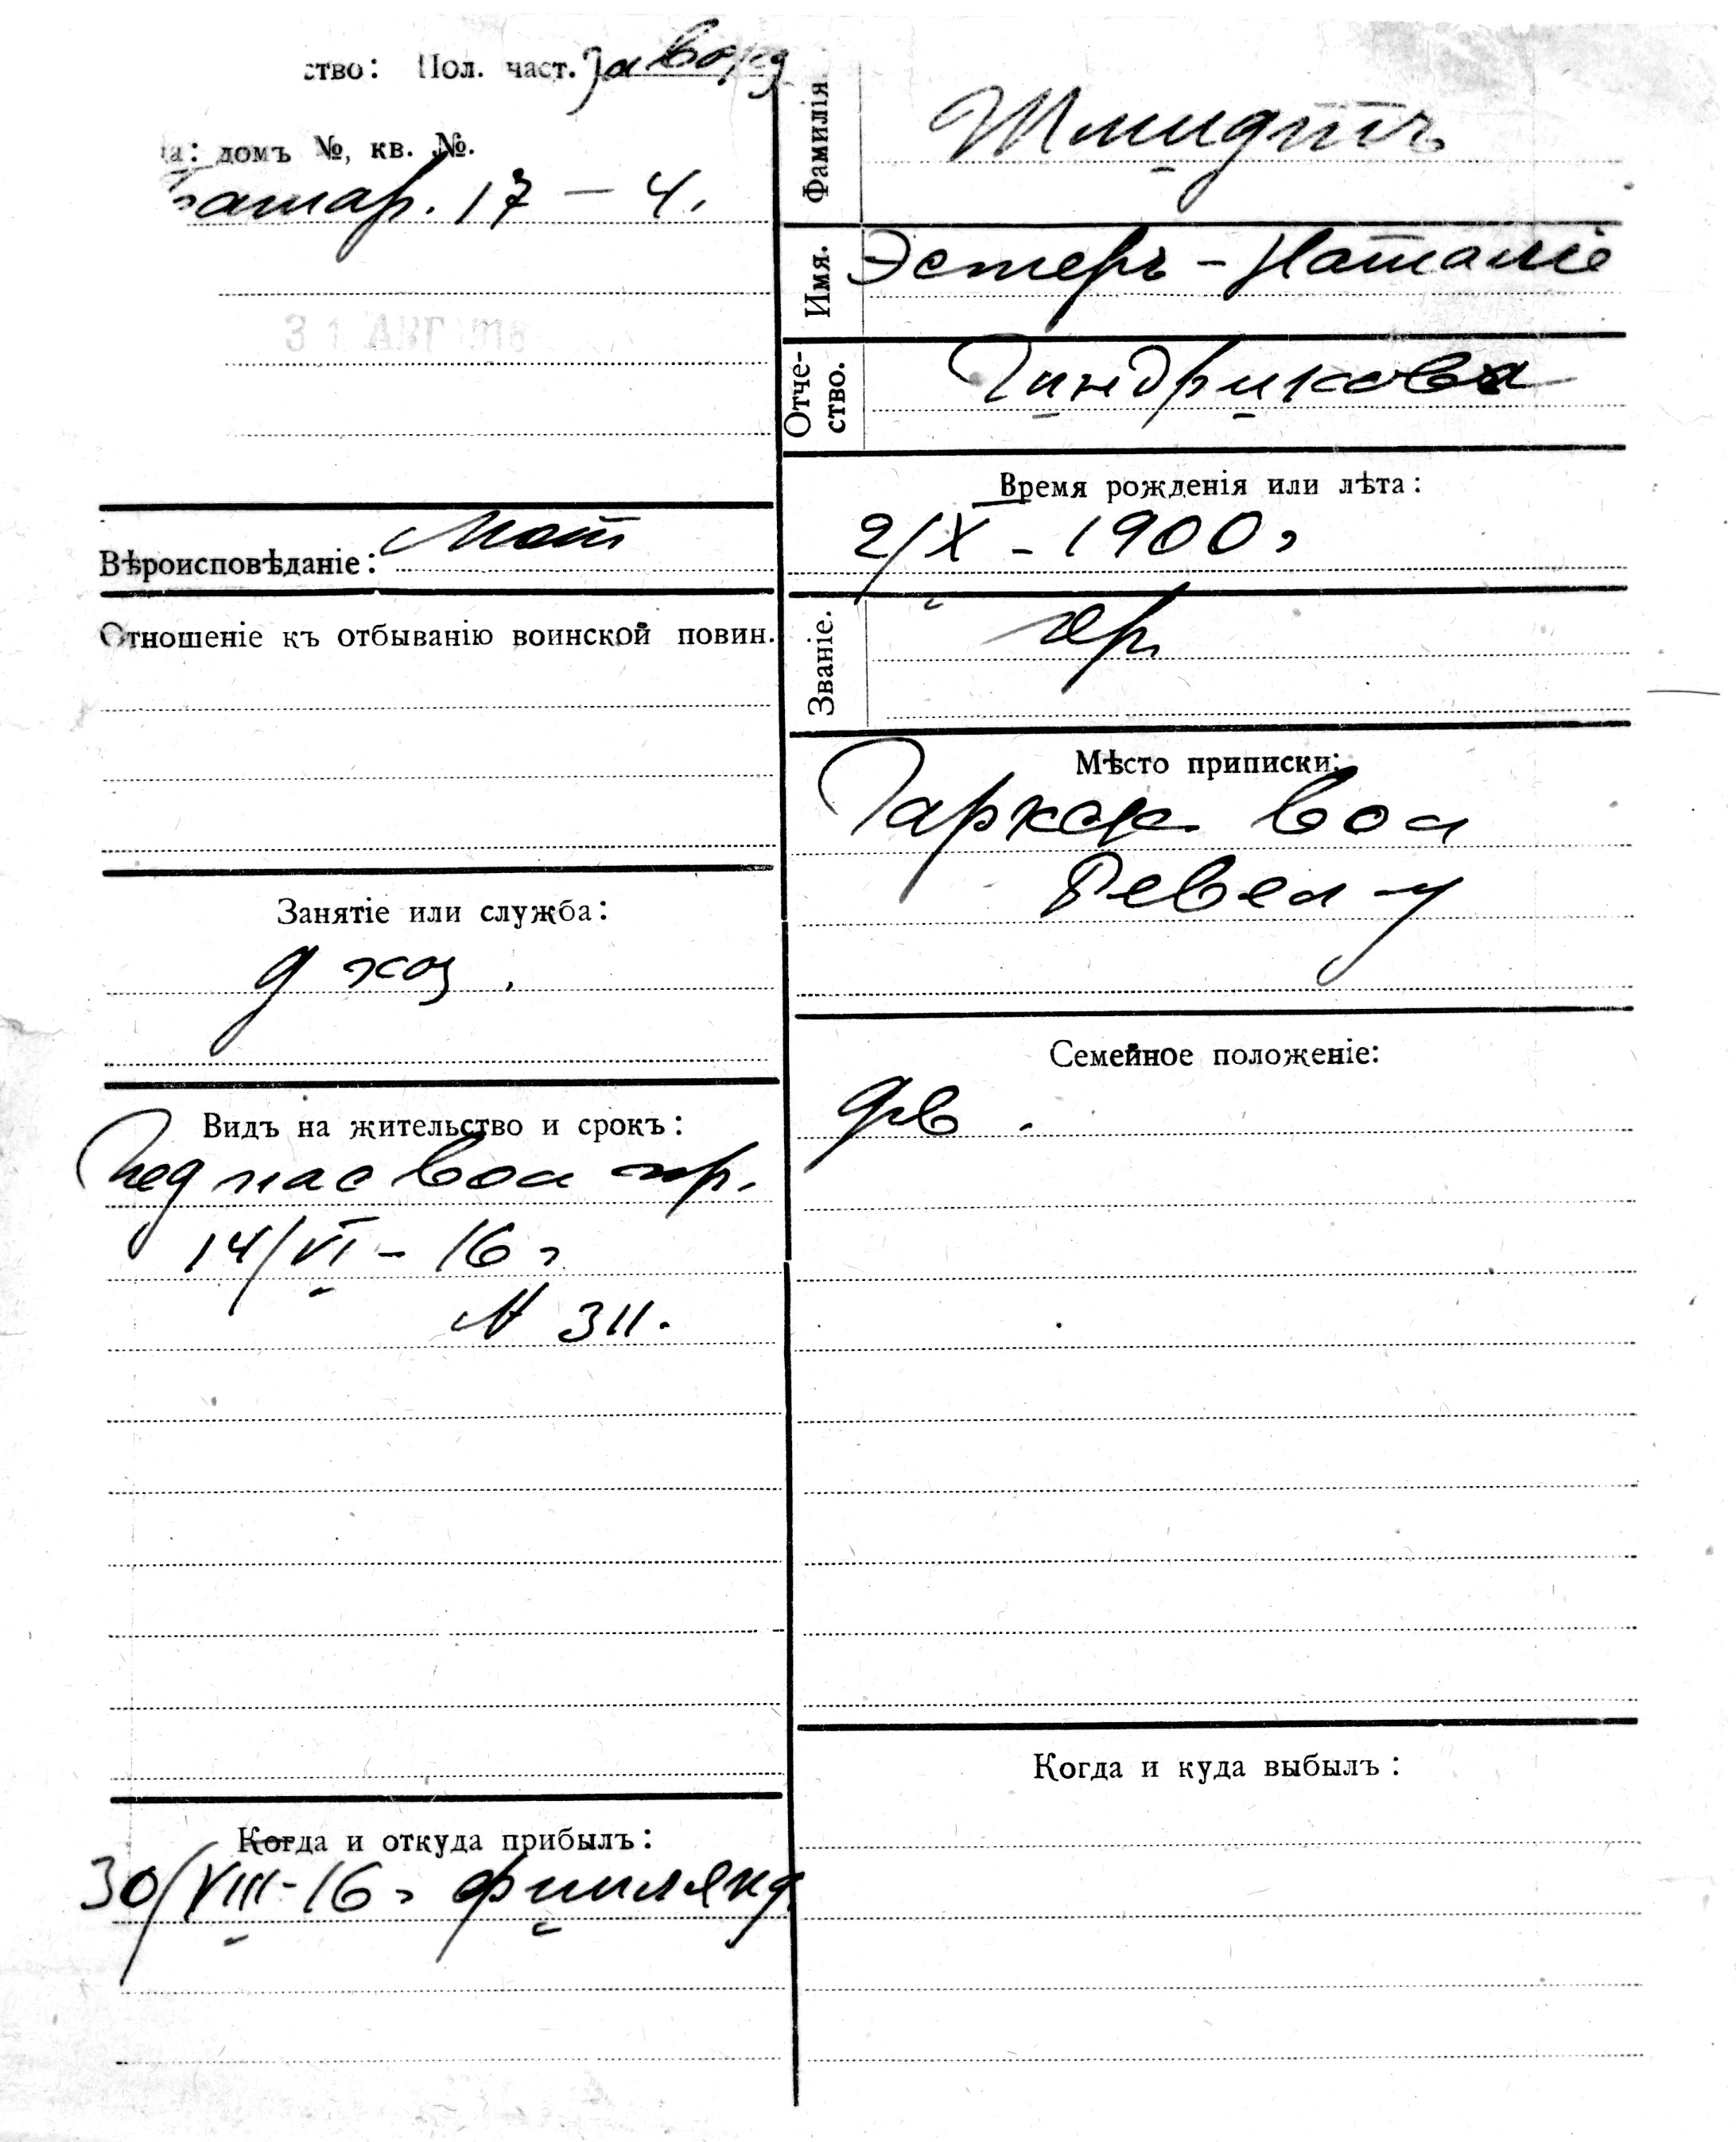 ство: Пол. част. завокз
на: домъ №, кв. №.
батар. 17 – 4.
31 АВГ 1916
Вѣроисповѣданіе: Лют
Отношеніе къ отбыванію воинской повин.
Занятіе или служба:
д хоз.
Видъ на жительство и срокъ:
вол пр.
14/VI – 16 г
№ 311.
Когда и откуда прибылъ:
30/VIII – 16 г финлянд.
Фамилія
Шмидтъ
Имя.
Эстеръ – Наталіе
Отче-
ство.
Гиндрикова
Время рожденія или лѣта:
2/X – 1900 г
Званіе.
кр.
Мѣсто приписки:
Гаркск. вол
Ревел – у
Семейное положеніе:
дѣв.
Когда и куда выбылъ: